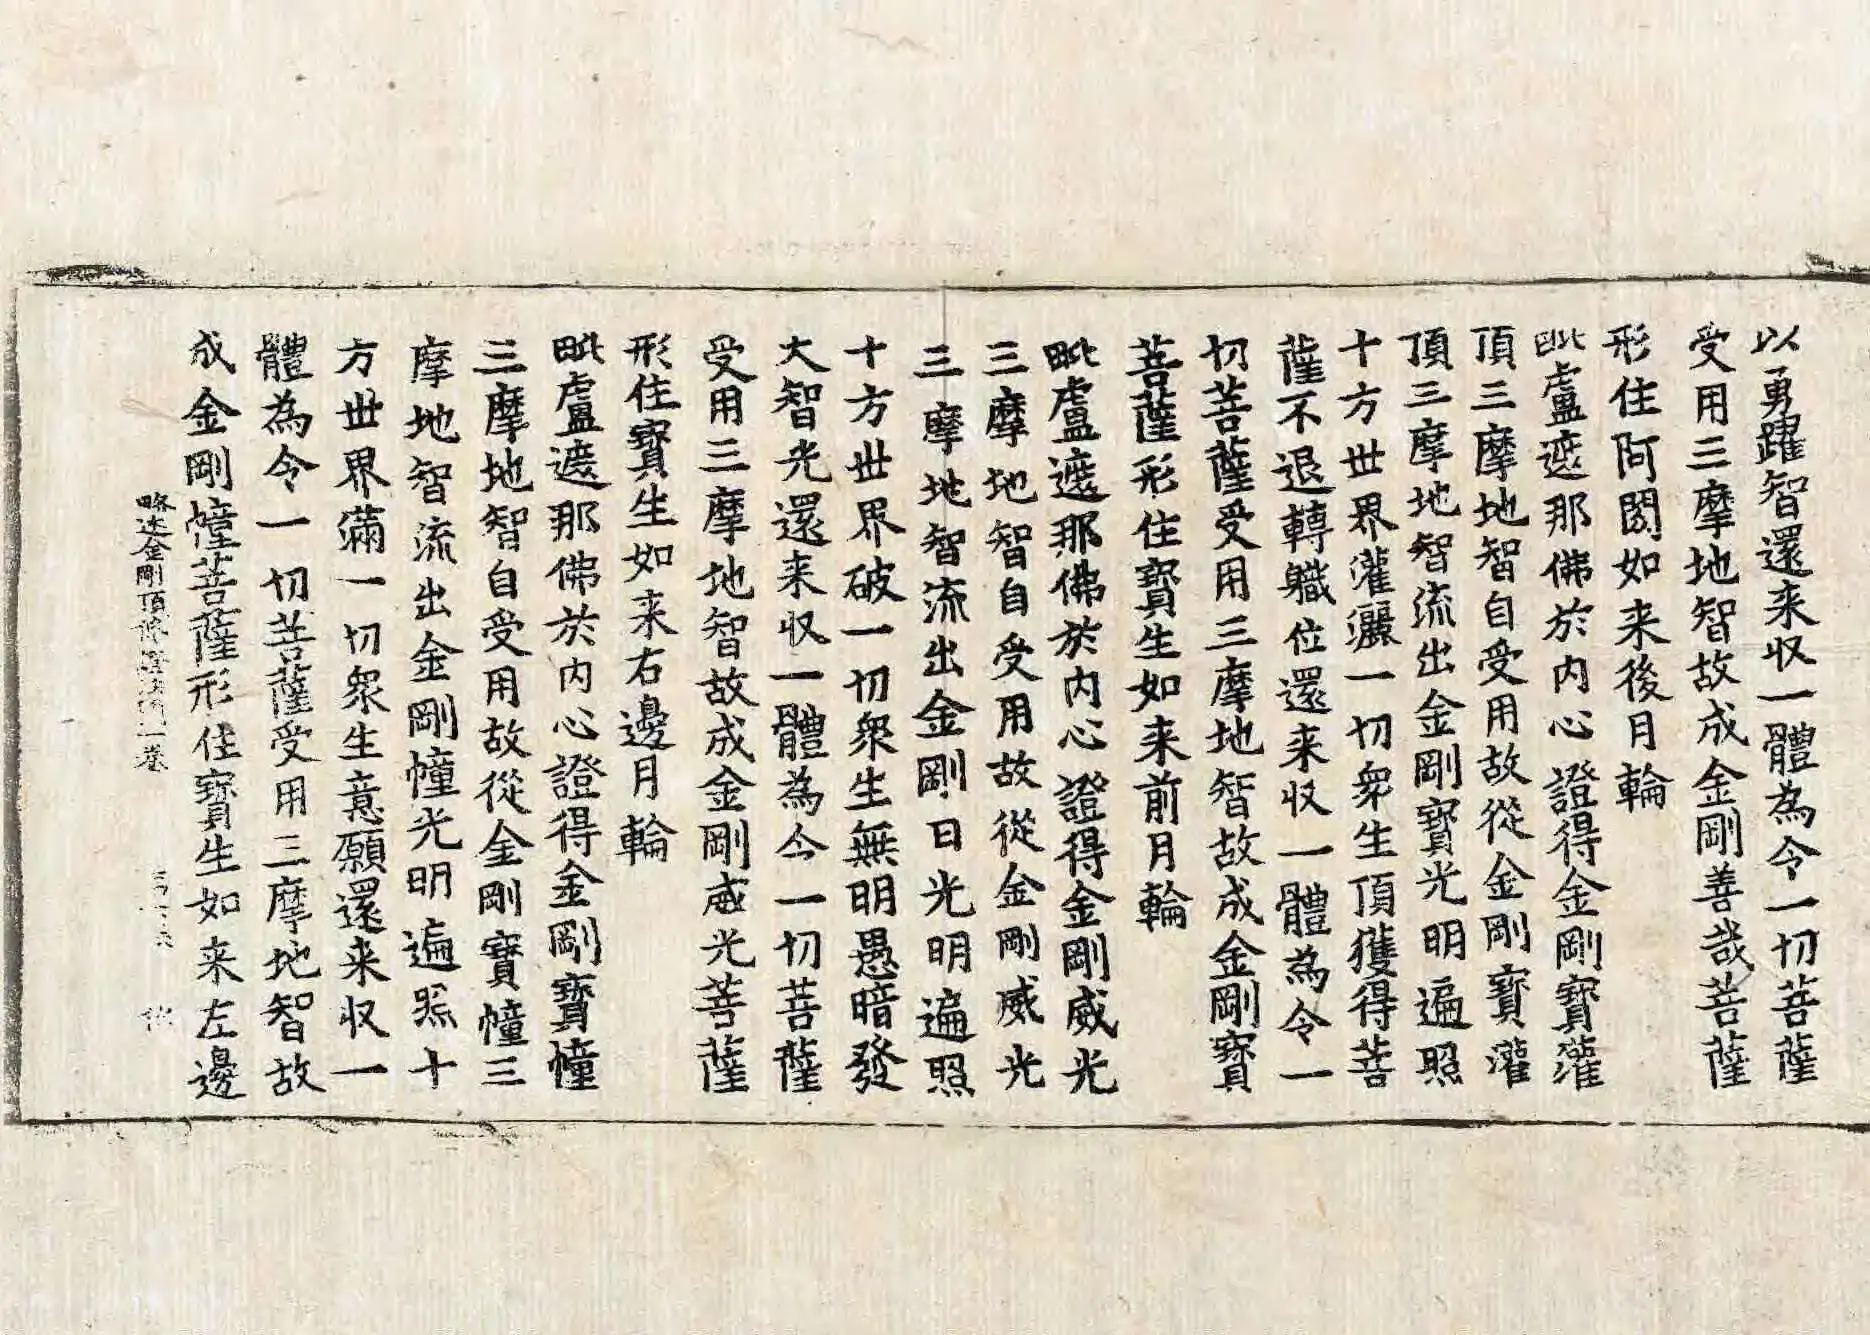 以勇躍智還来収一體為令一切菩薩
受用三摩地智故成金剛善哉菩薩
形住阿閦如来後月輪
毗盧遮那佛於内心證得金剛寶灌
頂三摩地智自受用故從金剛寶灌
頂三摩地智流出金剛寶光明遍照
十方世界灌灑一切衆生頂獲得菩
薩不退轉職位還来収一體為令一
切菩薩受用三摩地智故成金剛寶
菩薩形住寶生如来前月輪
毗盧遮那佛於内心證得金剛威光
三摩地智自受用故從金剛威光
三摩地智流出金剛日光明遍照
十方世界破一切衆生無明愚暗發
大智光還来収一體為今一切菩薩
受用三摩地智故成金剛威光菩薩
形住寶生如来右邊月輪
毗盧遮那佛於内心證得金剛寶幢
三摩地智自受用故從金剛寶幢三
摩地智流出金剛幢光明遍照十
方世界滿一切衆生意願還来収一
體為令一切菩薩受用三摩地智故
成金剛幢菩薩形住寶生如来左邊
略述金剛頂 一卷